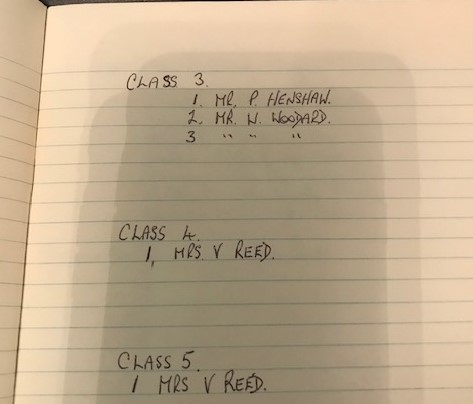 CLASS 3.
1. MR. P. HENSHAW.
2. MR. W. WOODARD.
3 " " "
CLASS 4.
1, MRS V REED.
CLASS 5.
1 MRS V REED.